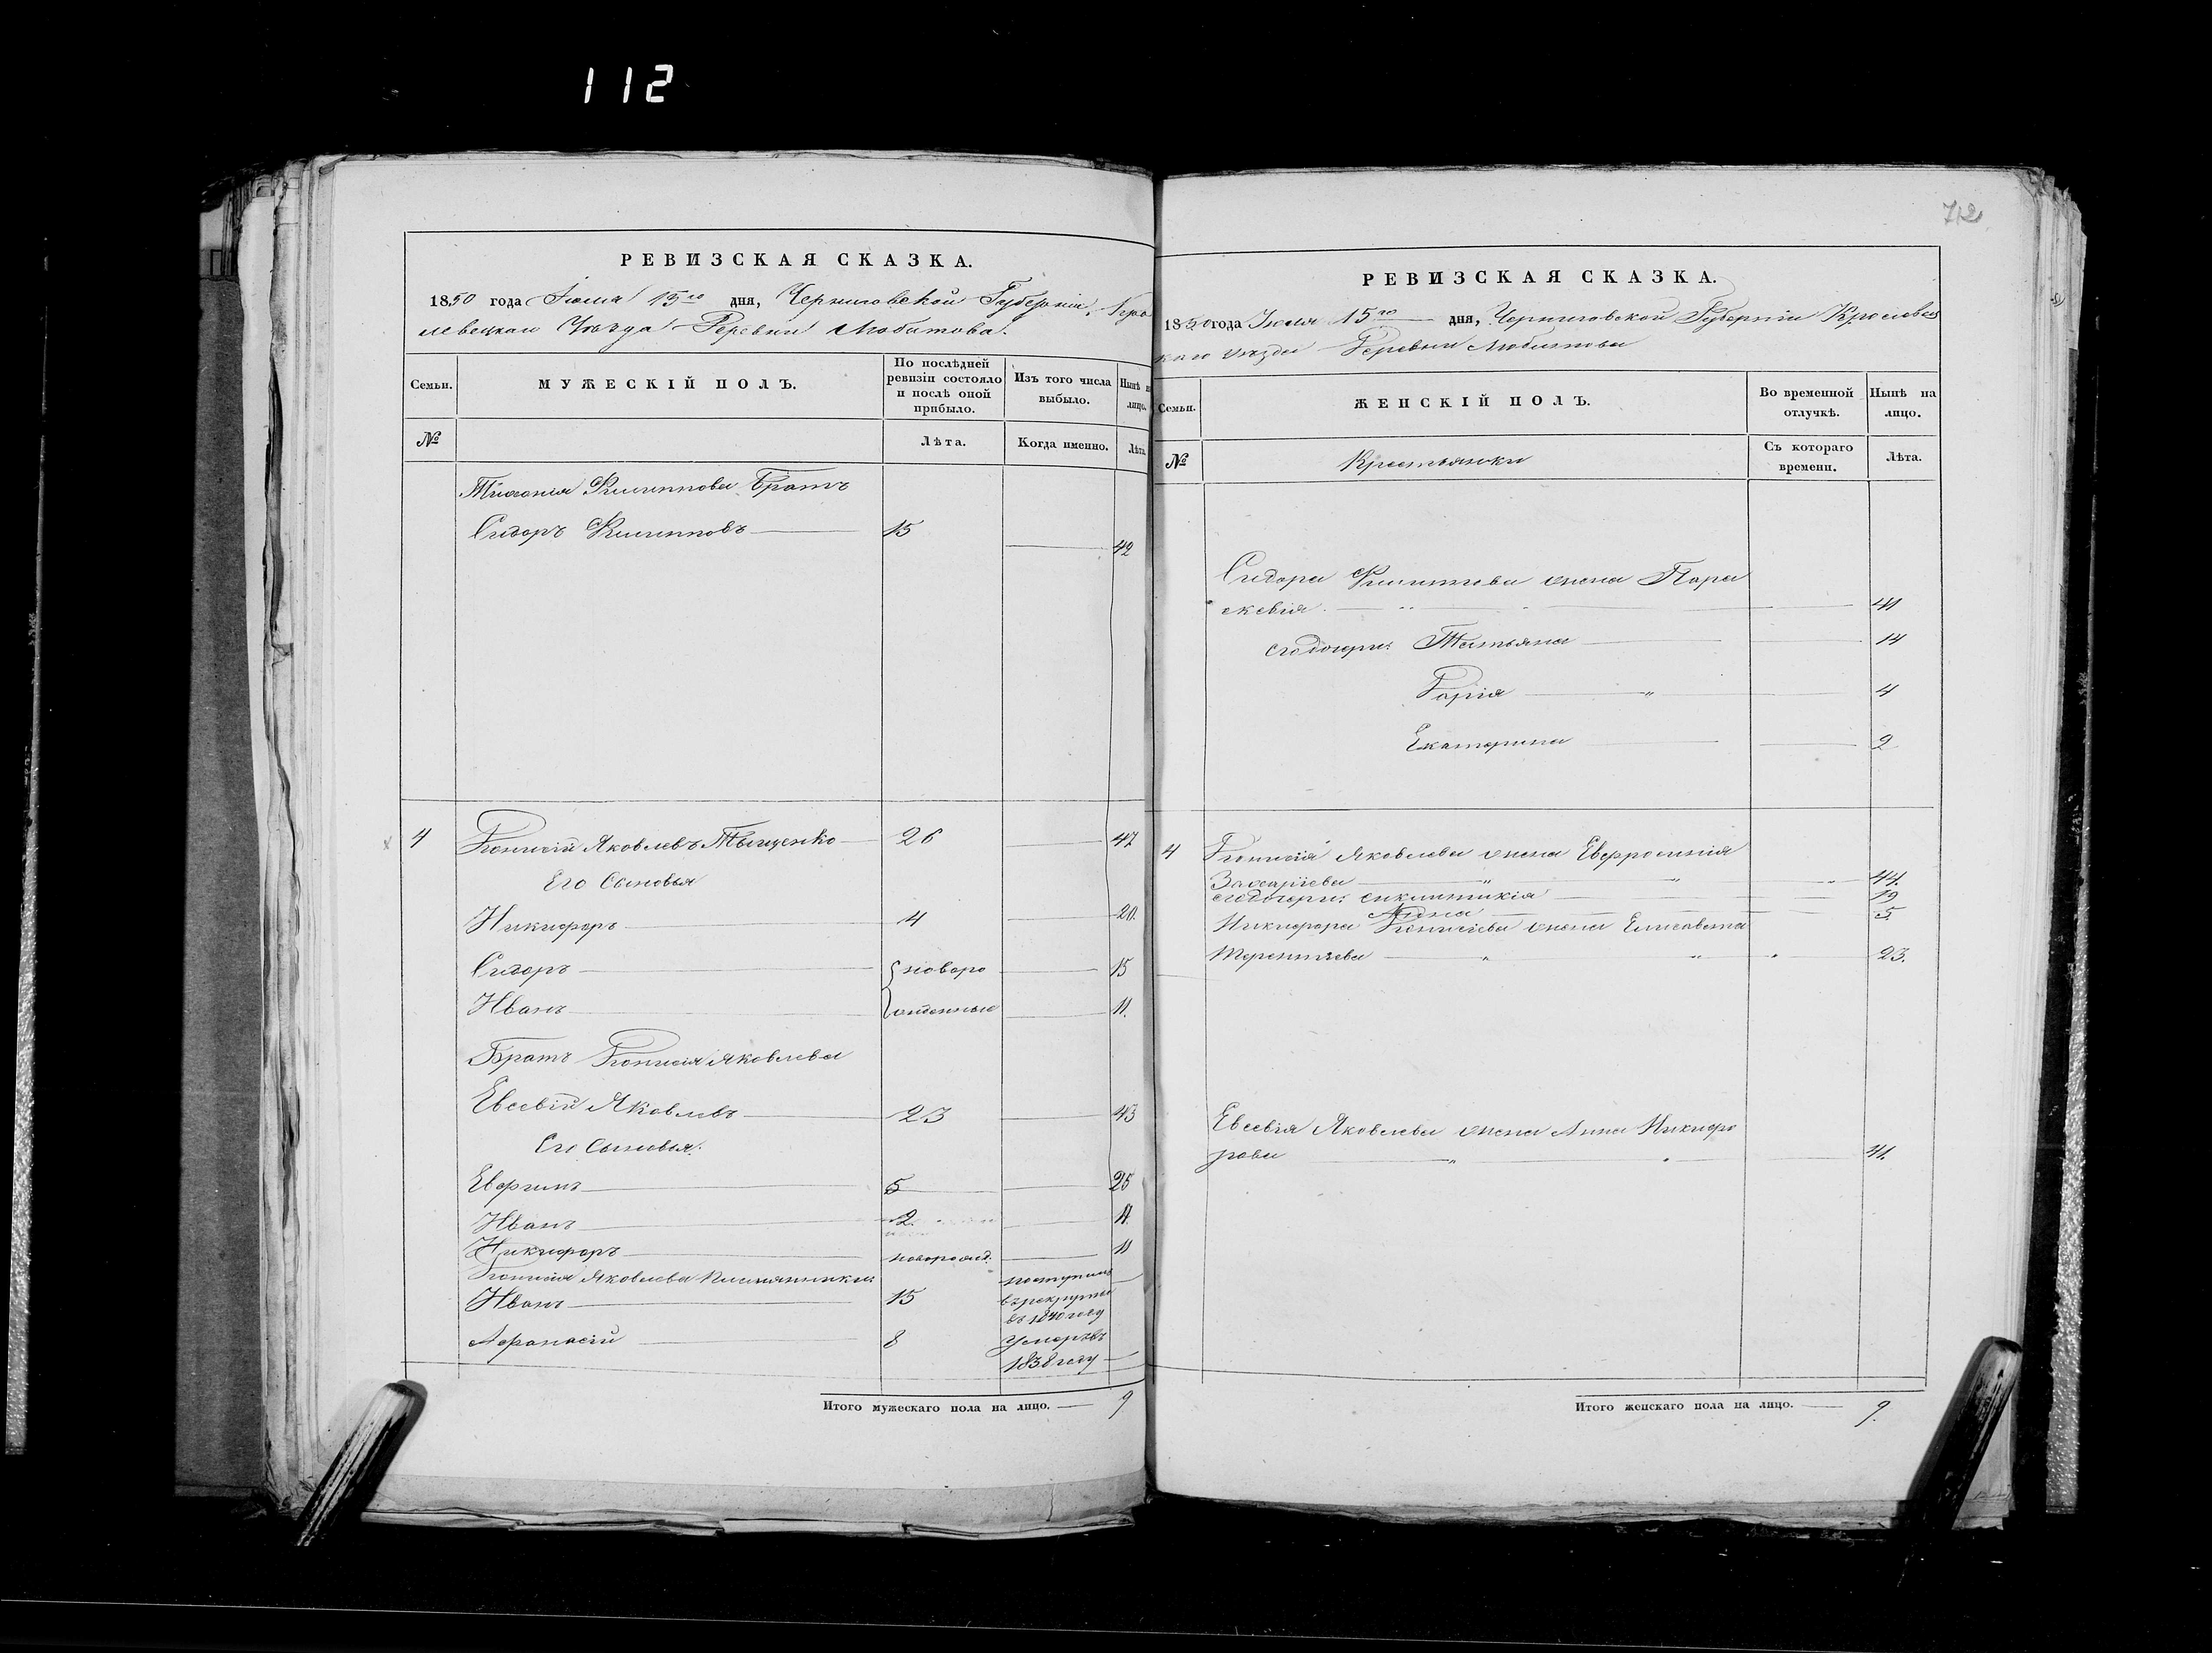 112
РЕВИЗСКАЯ СКАЗКА.
1850 года Іюля 15го дня, Черниговской Губерніи, Кро
левецкаго Уѣзда Деревни Любитова.
Семьи.
МУЖЕСКІЙ ПОЛЪ.
По послѣдней ревизіи состояло и послѣ оной прибыло.
Изъ того числа выбыло.
Нынѣ на лицо.
№
Лѣта.
Когда именно.
Лѣта.
Филиппова Братъ
Сидоръ Филипповъ 15 42
4 Діонисій Яковлевъ Тыщенко 26 47
Его Сыновья
Никифоръ 4 20.
Сидоръ новоро 15
Иванъ жденные 11.
Братъ Діонисія Яковлева
Евсевій Яковлевъ 23 43
Его Сыновья:
5 25
Иванъ 2.
Никифоръ новорожд. 11
Діонисія Яковлева Племянники:
Иванъ 15 поступилъ
въ рекруты
въ 1840 году
Афанасій 8 Умеръ въ
1838 году
Итого мужескаго пола на лицо. 9
712
РЕВИЗСКАЯ СКАЗКА.
1850 года Іюля 15го дня, Черниговской Губерніи Кролевец
каго уѣзда Деревни Любитова
Семьи.
ЖЕНСКІЙ ПОЛЪ.
Во временной отлучкѣ.
Нынѣ на лицо.
№
Крестьянки
Съ котораго времени.
Лѣта.
Сидора Филиппова жена Пара
скевія 41
его дочери: Татьяна 14
Дарія 4
Екатерина 2
4 Діонисія Яковлева жена Евфросинія
Захаріева 44.
его дочери: Синклитикія 19
Анна 5.
Никифора Діонисіева жена Елисавета
Терентіева 23.
Евсевія Яковлева жена Анна Никифо
рова 41.
Итого женскаго пола на лицо. 9.